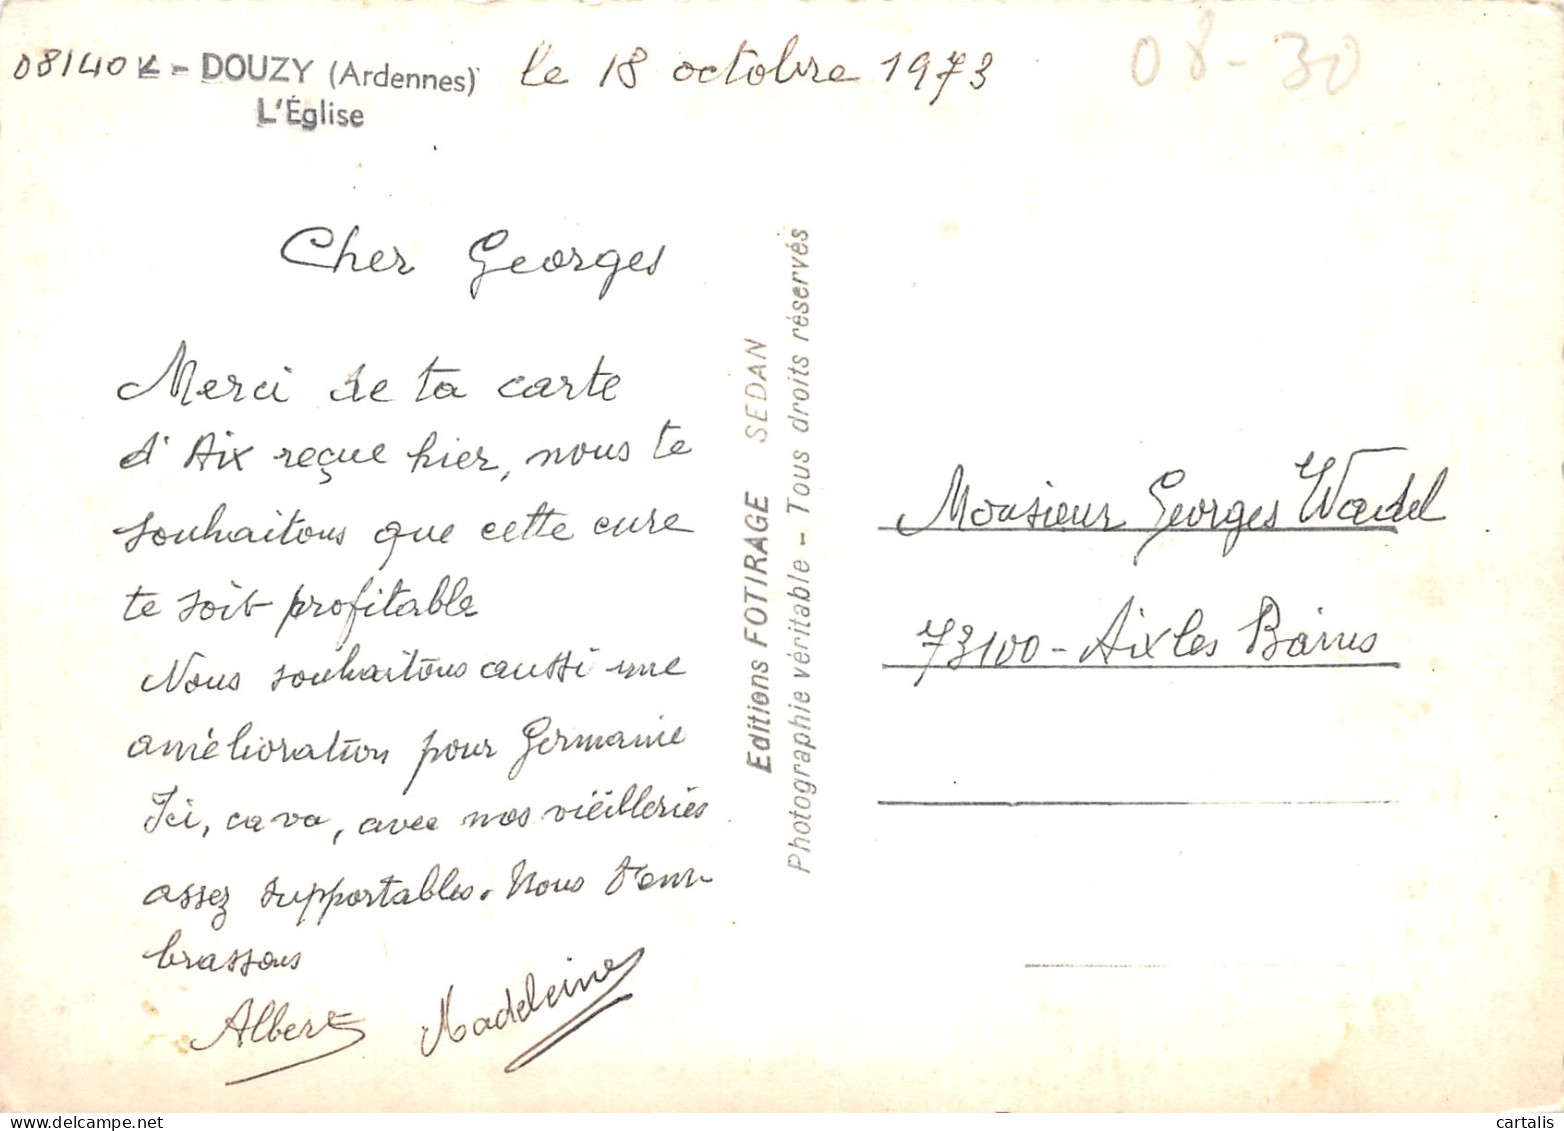 08140 - DOUZY (Ardennes)
L'Église
le 18 octobre 1973
08-30
Cher Georges
Merci de ta carte
d'Aix reçue hier, nous te
souhaitons que cette cure
te soit profitable
Nous souhaitons aussi une
amélioration pour Germanie
Ici, ca va, avec nos vieilleries
assez supportables. Nous t'em-
brassons
Albert Madeleine
Editions FOTIRAGE SEDAN
Photographie véritable - Tous droits réservés
Monsieur Georges Wadel
73100 - Aix les Bains
cartalis